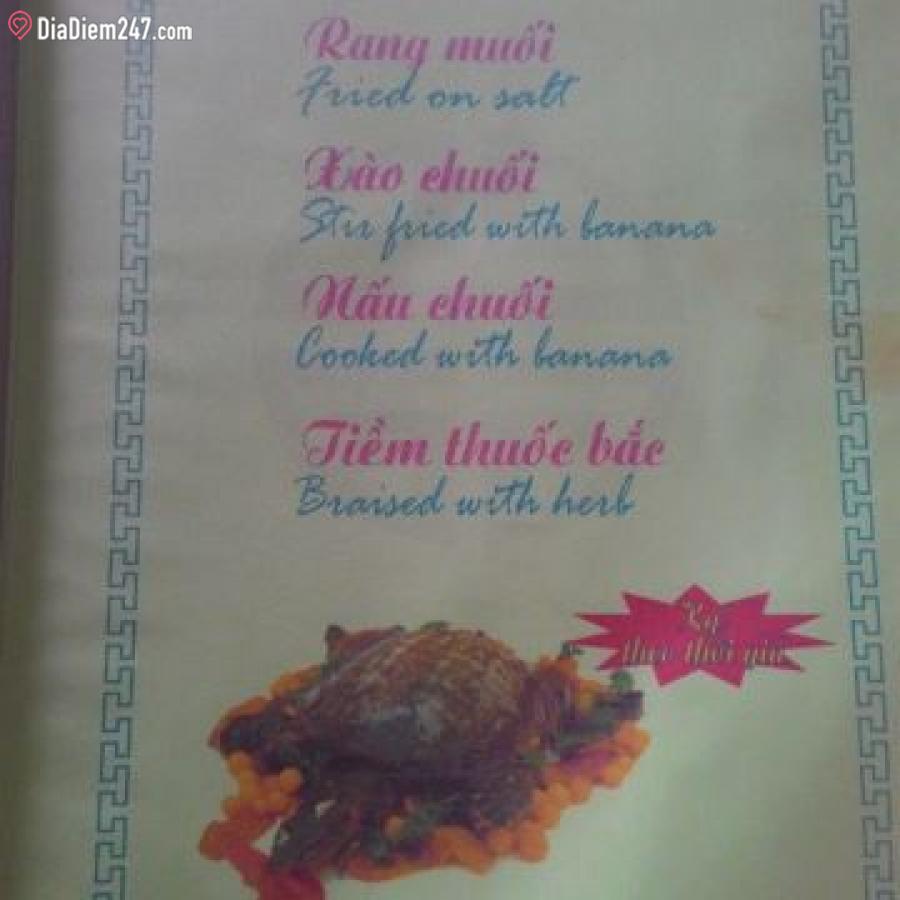 DiaDiem247.com
Rang muối
Fried on salt
Xào chuối
Stir fried with banana
Nấu chuối
Cooked with banana
Tiềm thuốc bắc
Braised with herb
Kg
theo thời giá